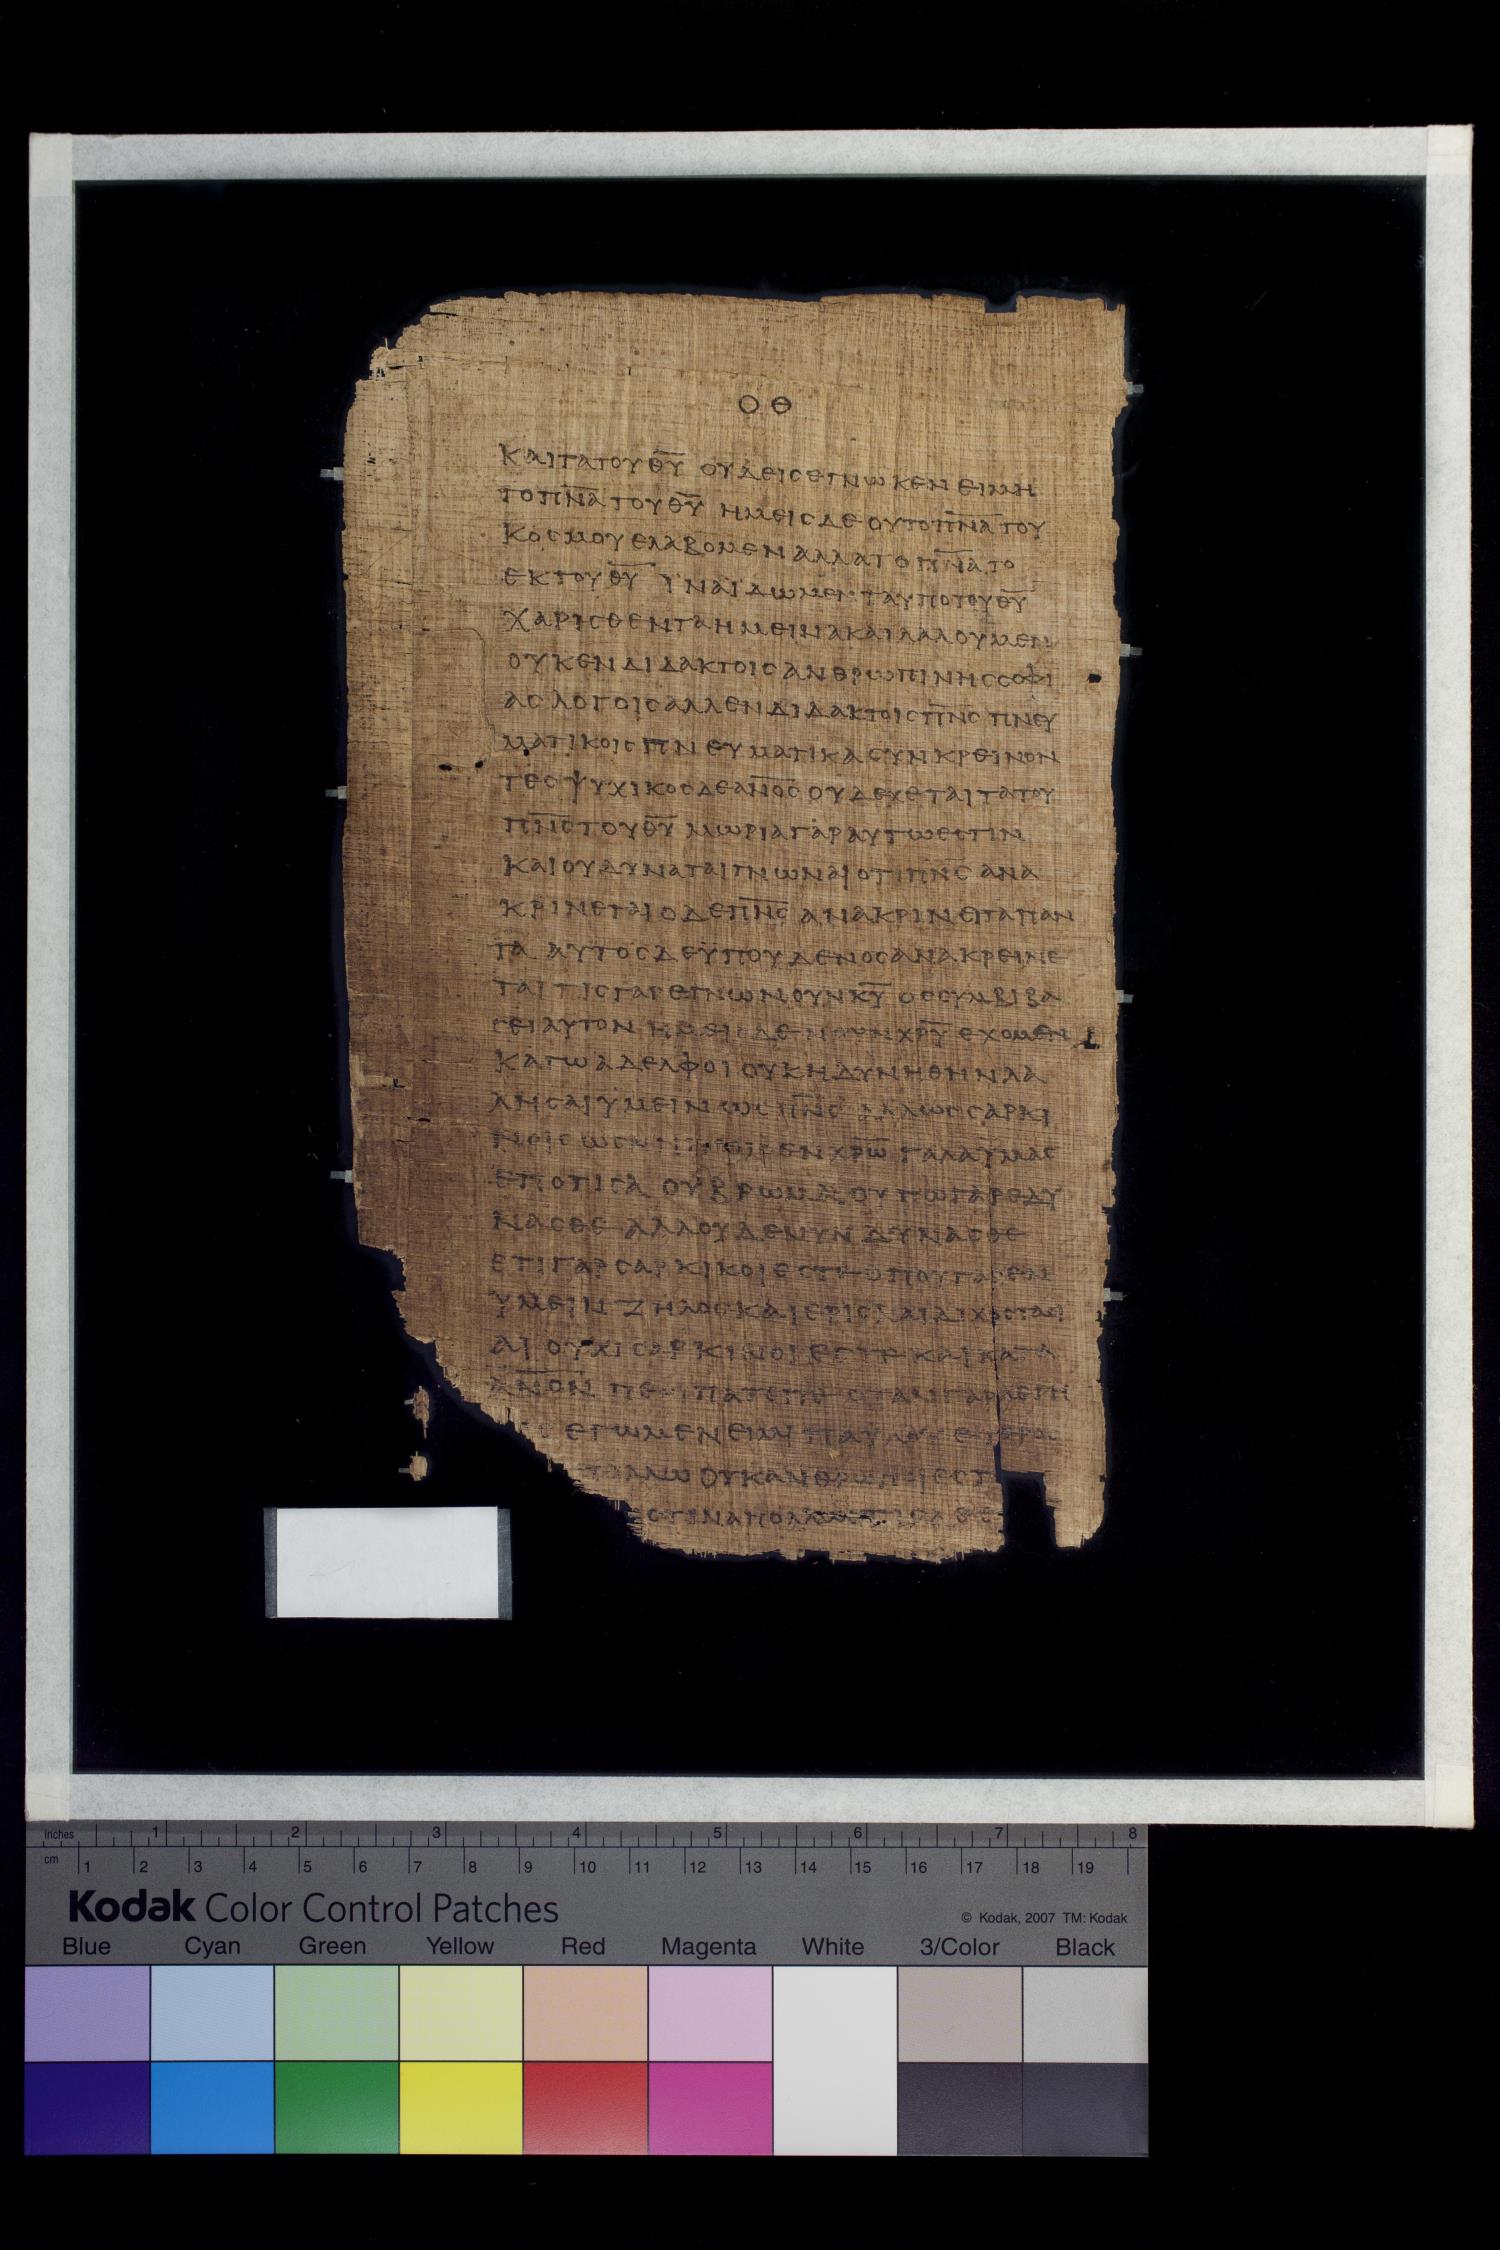 ΟΘ
ΚΑΙ ΤΑ ΤΟΥ Θ̅Υ̅ ΟΥΔΕΙΣ ΕΓΝΩΚΕΝ ΕΙ ΜΗ
ΤΟ Π̅Ν̅Α̅ ΤΟΥ Θ̅Υ̅ ΗΜΕΙΣ ΔΕ ΟΥ ΤΟ Π̅Ν̅Α̅ ΤΟΥ
ΚΟΣΜΟΥ ΕΛΑΒΟΜΕΝ ΑΛΛΑ ΤΟ Π̅Ν̅Α̅ ΤΟ
ΕΚ ΤΟΥ Θ̅Υ̅ ΪΝΑ ΪΔΩΜΕΝ ΤΑ ΥΠΟ ΤΟΥ Θ̅Υ̅
ΧΑΡΙΣΘΕΝΤΑ ΗΜΕΙΝ Α ΚΑΙ ΛΑΛΟΥΜΕΝ
ΟΥΚ ΕΝ ΔΙΔΑΚΤΟΙΣ ΑΝΘΡΩΠΙΝΗΣ ΣΟΦΙ
ΑΣ ΛΟΓΟΙΣ ΑΛΛ ΕΝ ΔΙΔΑΚΤΟΙΣ Π̅Ν̅Σ̅ ΠΝΕΥ
ΜΑΤΙΚΟΙΣ ΠΝΕΥΜΑΤΙΚΑ ΣΥΝΚΡΕΙΝΟΝ
ΤΕΣ ΨΥΧΙΚΟΣ ΔΕ Α̅Ν̅Ο̅Σ̅ ΟΥ ΔΕΧΕΤΑΙ ΤΑ ΤΟΥ
Π̅Ν̅Σ̅ ΤΟΥ Θ̅Υ̅ ΜΩΡΙΑ ΓΑΡ ΑΥΤΩ ΕΣΤΙΝ
ΚΑΙ ΟΥ ΔΥΝΑΤΑΙ ΓΝΩΝΑΙ ΟΤΙ Π̅Ν̅Σ̅ ΑΝΑ
ΚΡΙΝΕΤΑΙ Ο ΔΕ Π̅Ν̅Σ̅ ΑΝΑΚΡΙΝΕΙ ΤΑ ΠΑΝ
ΤΑ ΑΥΤΟΣ ΔΕ ΫΠ ΟΥΔΕΝΟΣ ΑΝΑΚΡΕΙΝΕ
ΤΑΙ ΤΙΣ ΓΑΡ ΕΓΝΩ ΝΟΥΝ Κ̅Υ̅ ΟΣ ΣΥΜΒΙΒΑ
ΣΕΙ ΑΥΤΟΝ ΗΜΕΙΣ ΔΕ ΝΟΥΝ Χ̅Ρ̅Υ̅ ΕΧΟΜΕΝ
ΚΑΓΩ ΑΔΕΛΦΟΙ ΟΥΚ ΗΔΥΝΗΘΗΝ ΛΑ
ΛΗΣΑΙ ΫΜΕΙΝ ΩΣ Π̅Ν̅Σ̅ ΑΛΛ ΩΣ ΣΑΡΚΙ
ΝΟΙΣ ΩΣ ΕΝ Χ̅Ρ̅Ω̅ ΓΑΛΑ ΫΜΑΣ
ΕΠΟΤΙΣΑ ΟΥ ΒΡΩΜΑ ΟΥΠΩ ΓΑΡ ΕΔΥ
ΝΑΣΘΕ ΑΛΛ ΟΥΔΕ ΝΥΝ ΔΥΝΑΣΘΕ
ΕΤΙ ΓΑΡ ΣΑΡΚΙΚΟΙ ΕΣΤΕ ΟΠΟΥ ΓΑΡ ΕΝ
ΫΜΕΙΝ ΖΗΛΟΣ ΚΑΙ ΕΡΙΣ ΚΑΙ ΔΙΧΟΣΤΑΣΙ
ΑΙ ΟΥΧΙ ΣΑΡΚΙΝΟΙ ΕΣΤΕ ΚΑΙ ΚΑΤΑ
Α̅Ν̅Ο̅Ν̅ ΠΕΡΙΠΑΤΕΙΤΕ ΟΤΑΝ ΓΑΡ ΛΕΓΗ
ΕΓΩ ΜΕΝ ΕΙΜΙ ΠΑΥΛΟΥ ΕΤΕΡΟΣ
ΑΠΟΛΛΩ ΟΥΚ ΑΝΘΡΩΠΟΙ ΕΣΤ
ΕΣΤΙΝ ΑΠΟΛΛΩ
inches 1 2 3 4 5 6 7 8
cm 1 2 3 4 5 6 7 8 9 10 11 12 13 14 15 16 17 18 19
Kodak Color Control Patches
© Kodak, 2007 TM: Kodak
Blue Cyan Green Yellow Red Magenta White 3/Color Black